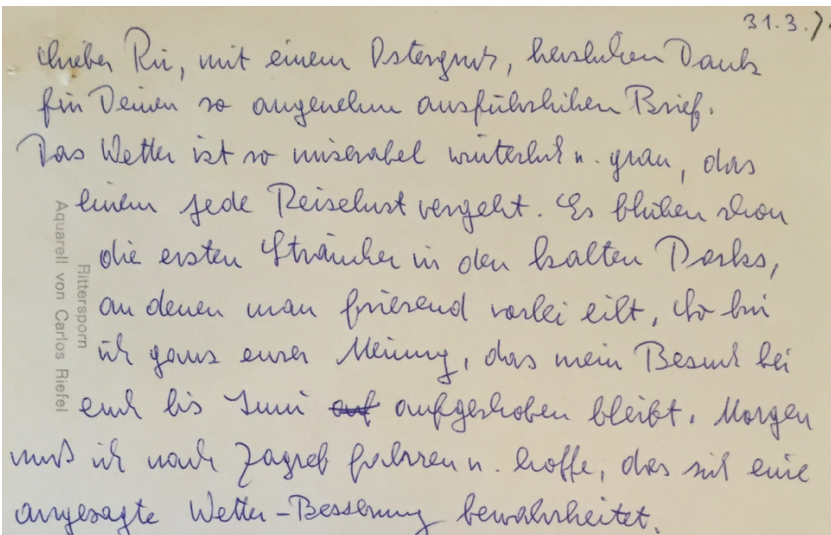 31.3.7
Lieber Ri, mit einem Ostergruß, herzlichen Dank
für Deinen so angenehm ausführlichen Brief.
Das Wetter ist so miserabel winterlich u. grau, das
einem jede Reiselust vergeht. Es blühen schon
die ersten Sträucher in den kalten Parks,
an denen man frierend vorbei eilt, So bin
ich ganz eurer Meinung, das mein Besuch bei
euch bis Juni auf aufgeschoben bleibt. Morgen
muß ich nach Zagreb fahren u. hoffe, das sich eine
angesagte Wetter-Besserung bewahrheitet.
Rittersporn
Aquarell von Carlos Riefel